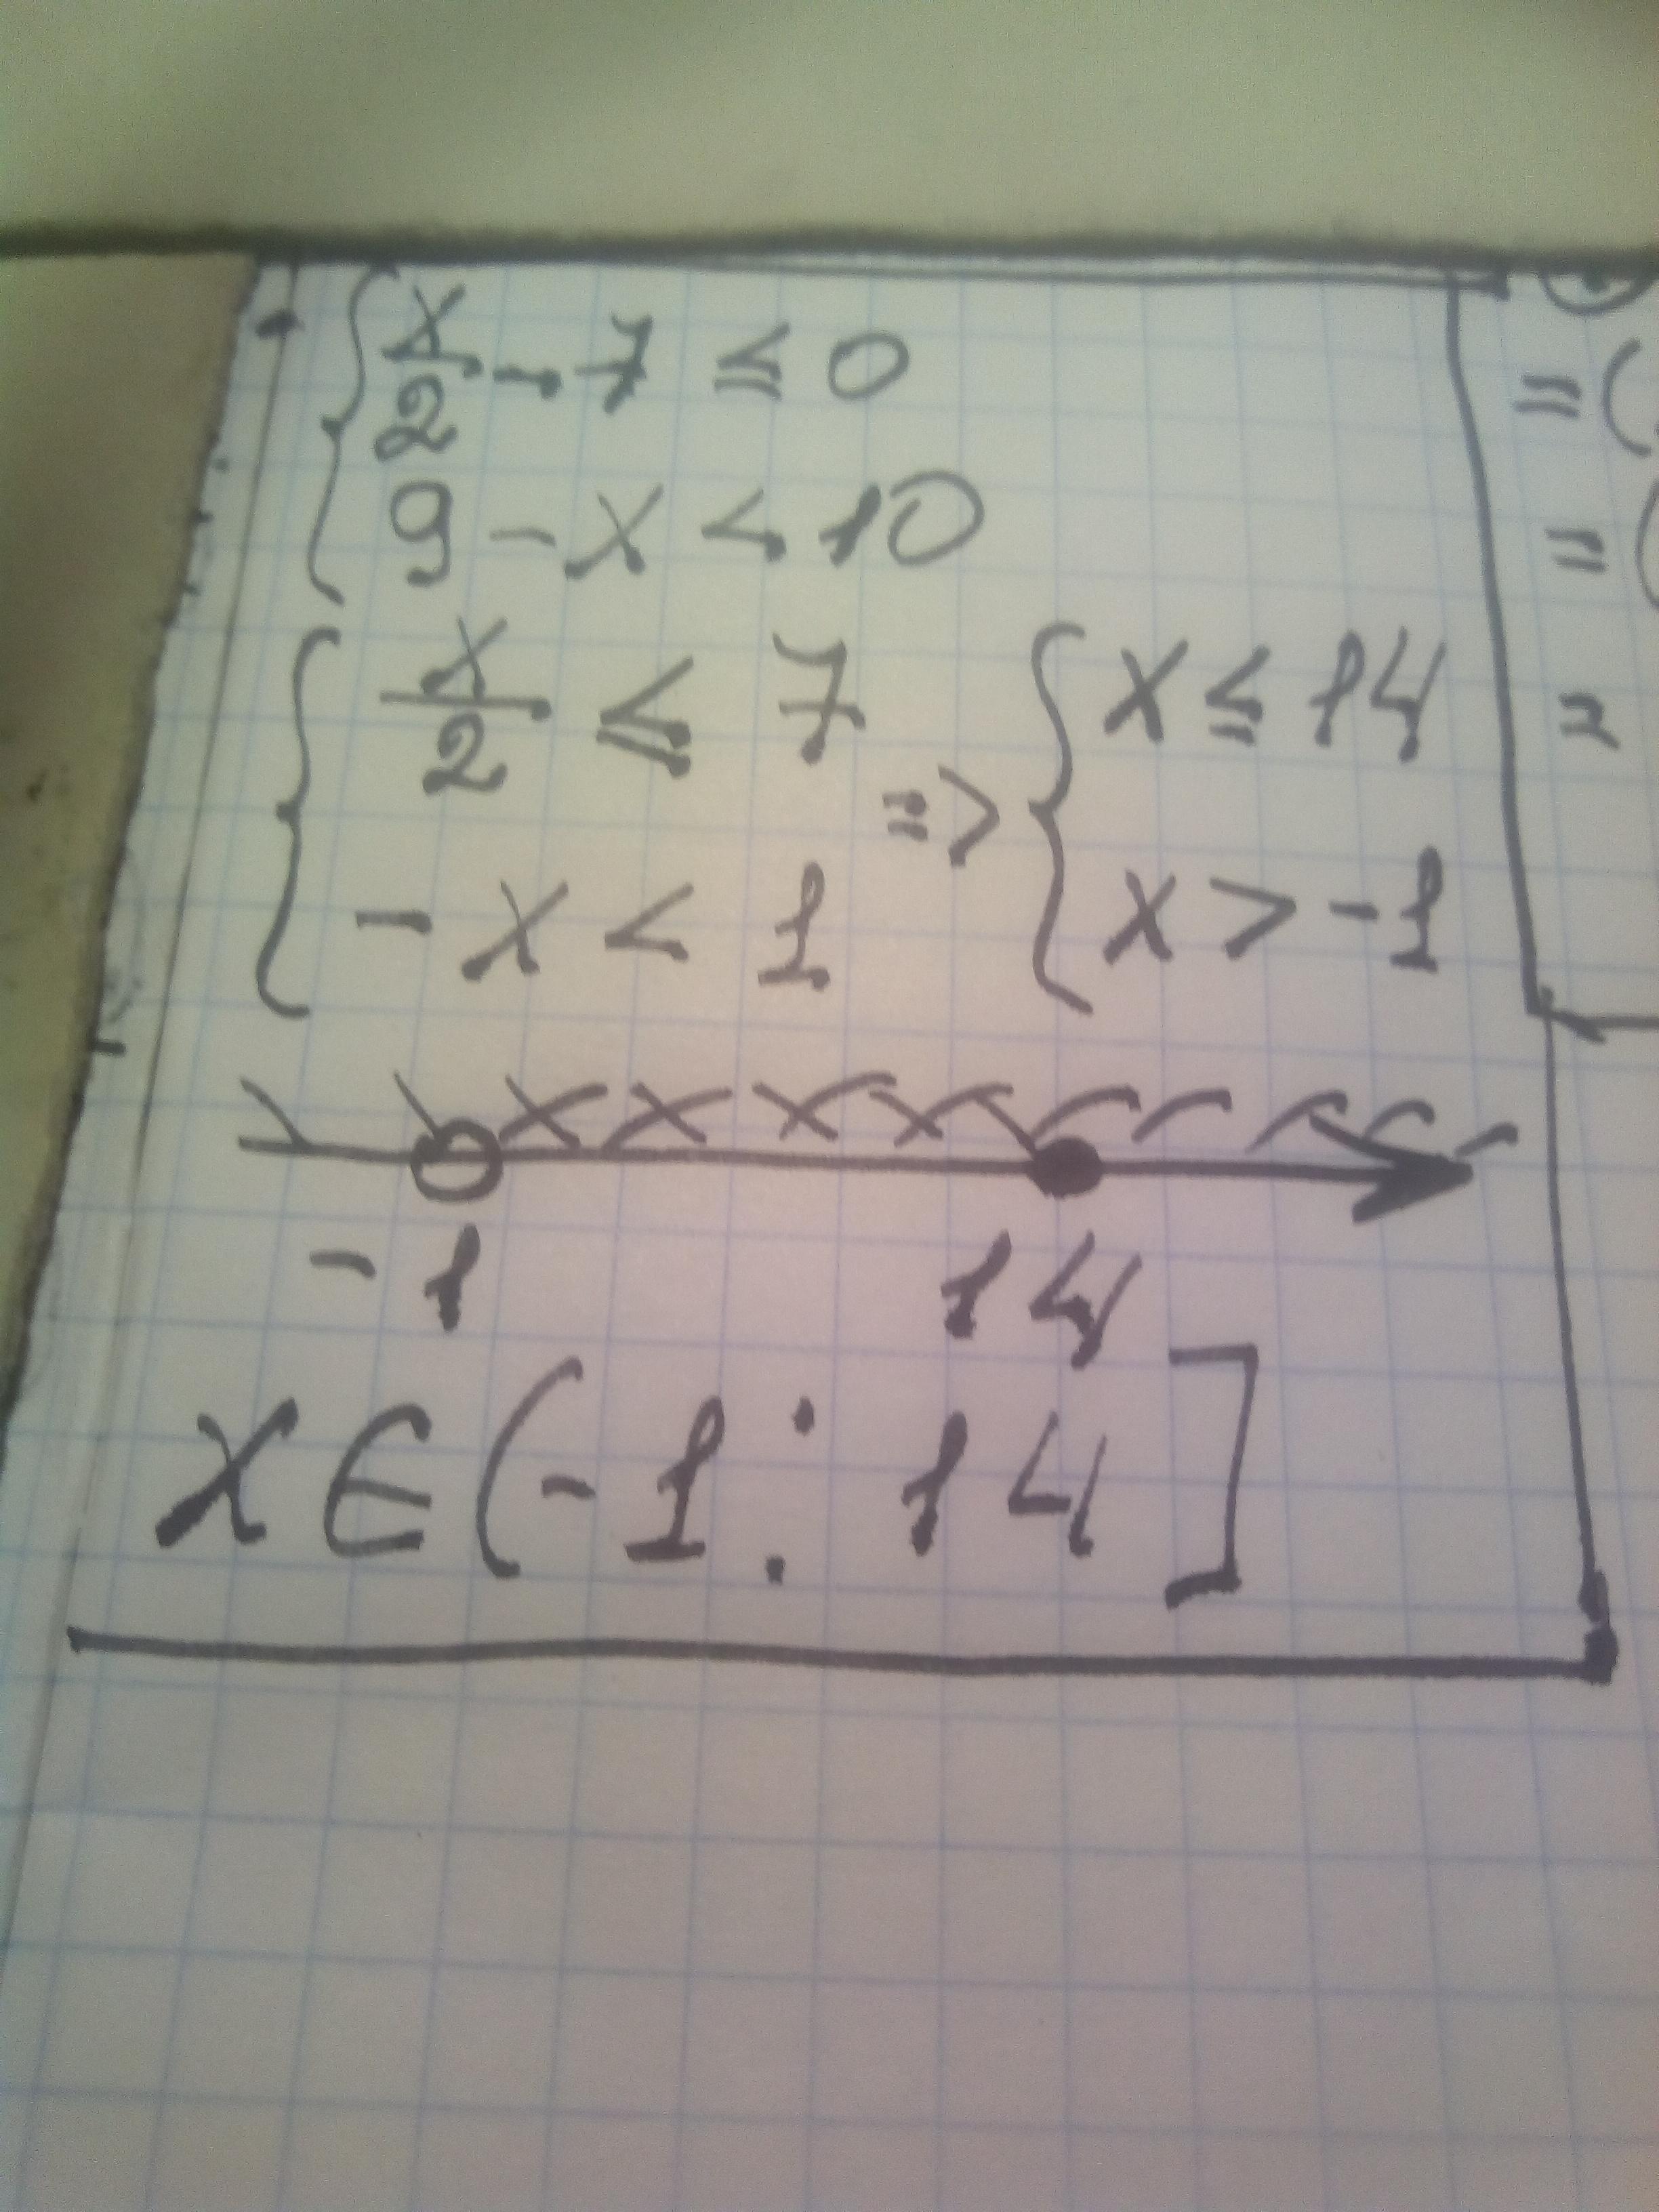 { x/2 - 7 ≤ 0
9 - x < 10
{ x/2 ≤ 7
- x < 1
=> { x ≤ 14
x > -1
-1 14
x ∈ (-1 : 14]
= (
= (
=